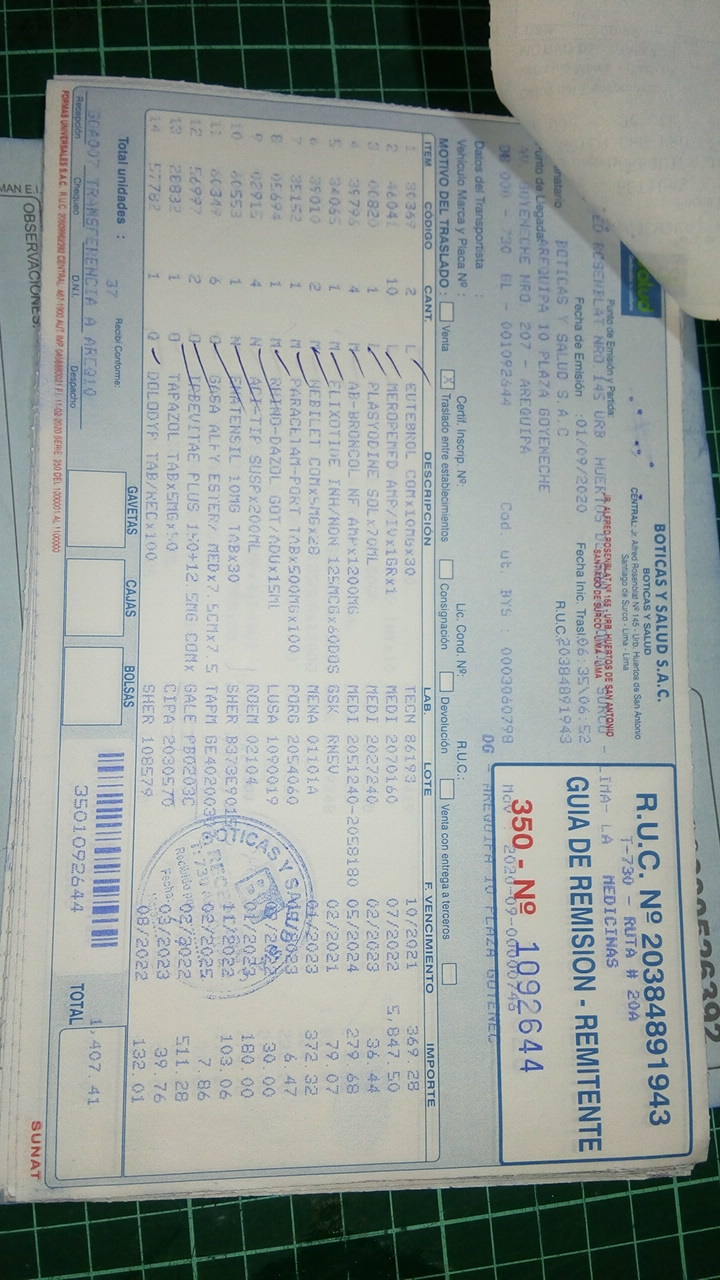 Salud
BOTICAS Y SALUD S.A.C.
BOTICAS Y SALUD
CENTRAL: Jr. Alfred Rosenblat Nº 145 - Urb. Huertos de San Antonio
Santiago de Surco - Lima - Lima
R.U.C. Nº 20384891943
T-730 - RUTA # 20A
MEDICINAS
GUIA DE REMISION - REMITENTE
350 - Nº 1092644
Punto de Emisión y Partida
ED ROSENBLAT NRO 145 URB HUERTOS DE SURCO - LIMA- LA
JR. ALFRED ROSENBLAT Nº 165 - URB. HUERTOS DE SAN ANTONIO
SANTIAGO DE SURCO - LIMA - LIMA
Fecha de Emisión : 01/09/2020 Fecha Inic. Trasl. 06:35\06:52
BOTICAS Y SALUD S.A.C R.U.C. 20384891943
Punto de Llegada AREQUIPA 10 PLAZA GOYENECHE
AV GOYENECHE NRO 207 - AREQUIPA
730 GL - 001092644 Cod ut. BYS : 0003060798
DG - AREQUIPA 10 PLAZA GOYENEC
Datos del Transportista :
Vehículo Marca y Placa Nº : Certif. Inscrip. Nº: Lic. Cond. Nº: R.U.C.:
MOTIVO DEL TRASLADO : Venta X Traslado entre establecimientos Consignación Devolución Venta con entrega a terceros
ITEM CÓDIGO CANT. DESCRIPCIÓN LAB. LOTE F. VENCIMIENTO IMPORTE
1 30369 2 L EUTEBROL COMx10MGx30 TECN 86193 10/2021 369.28
2 46041 10 L MEROPENFD AMP/IVx1GRx1 MEDI 2070160 07/2022 5,847.50
3 00820 1 L PLASYODINE SOLx70ML MEDI 2027240 02/2023 36.44
4 35796 4 M AB-BRONCOL NF AMPx1200MG MEDI 2051240-2058180 05/2024 279.68
5 36065 1 M FLIXOTIDE INH/NDN 125MCGx60DOS GSK RN5V 02/2021 79.07
6 39010 2 M NEBILET COMx5MGx28 MENA 01101A 01/2023 372.32
7 35152 1 M PARACETAM-PORT TABx500MGx100 PORG 2054060 2023 6.47
8 05694 1 M RHINO-DAZOL GOT/ADUx15ML LUSA 1090019 30.00
9 02915 4 N SUSPx200ML ROEM 02104 01/2023 180.00
10 60553 1 N 10MG TABx30 SHER B373E901 11/2022 103.06
11 60349 6 O GASA ALFY ESTER/ MEDx7.5CMx7.5 TAPM 02/2025 7.86
12 56997 2 O IRBEVITAE PLUS 150+12.5MG COMx GALE PB0203C 2022 511.28
13 20832 1 O TAPAZOL TABx5MGx50 CIPA 2030570 2023 39.76
14 57782 1 O DOLODYF TAB/RECx100 SHER 108579 08/2022 132.01
BOTICAS Y SALUD
Recibido
Fecha
Total unidades : 37
Recibí Conforme:
TRANSFERENCIA A AREQ10
Recepción Chequeo D.N.I. Despacho
GAVETAS CAJAS BOLSAS
3501092644
TOTAL 407.41
FORMAS UNIVERSALES S.A.C.
SUNAT
MAN E.I.
OBSERVACIONES: